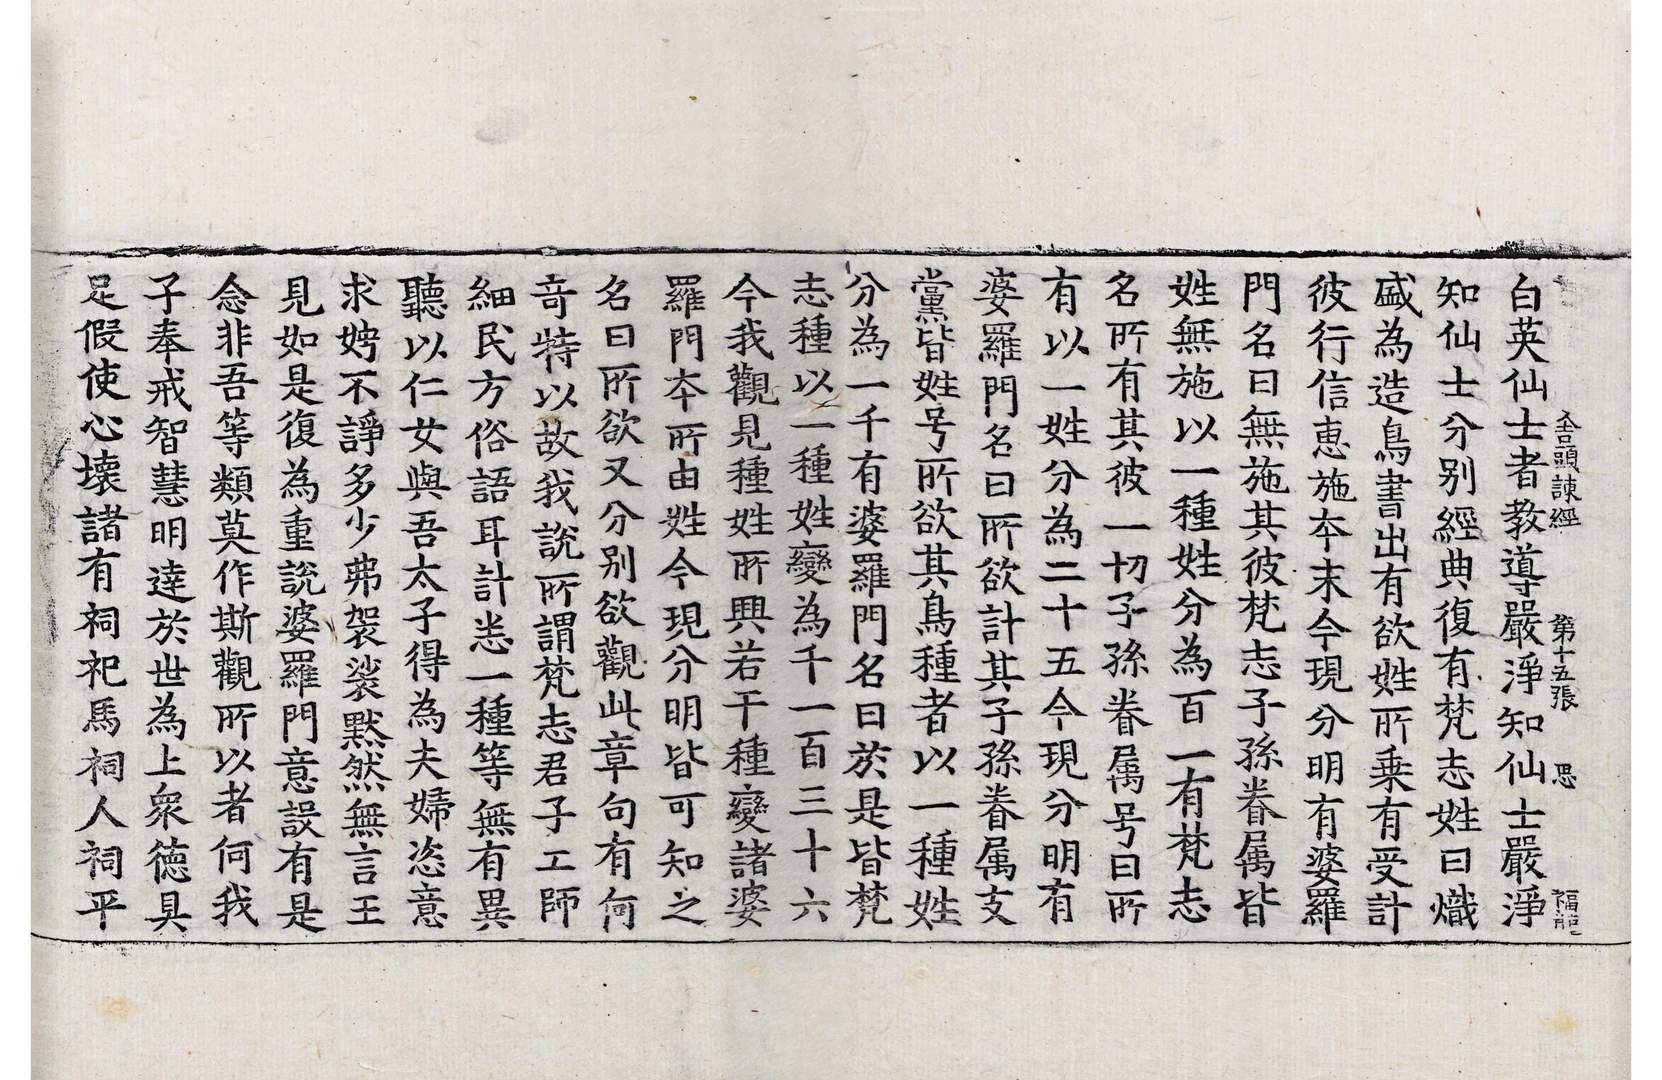 舍頭諫經 第十五張 思 福龍
白英仙士者教導嚴淨知仙士嚴淨
知仙士分别經典復有梵志姓曰熾
盛為造鳥書出有欲姓所乗有受計
彼行信恵施夲末今現分明有婆羅
門名曰無施其彼梵志子孫眷属皆
姓無施以一種姓分為百一有梵志
名所有其彼一切子孫眷属号曰所
有以一姓分為二十五今現分明有
婆羅門名曰所欲計其子孫眷属支
黨皆姓号所欲其鳥種者以一種姓
分為一千有婆羅門名曰於是皆梵
志種以一種姓變為千一百三十六
今我觀見種姓所興若干種變諸婆
羅門夲所由姓今現分明皆可知之
名曰所欲又分别欲觀此章句有何
竒特以故我說所謂梵志君子工師
細民方俗語耳計悉一種等無有異
聽以仁女與吾太子得為夫婦恣意
求娉不諍多少弗袈裟默然無言王
見如是復為重說婆羅門意誤有是
念非吾等類莫作斯觀所以者何我
子奉戒智慧明達於世為上衆徳具
足假使心壞諸有祠祀馬祠人祠平